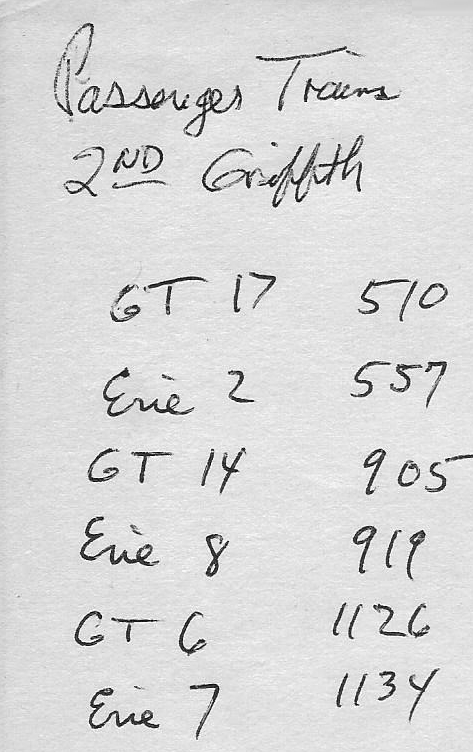 Passenger Trains
2ND Griffith
GT 17 510
Erie 2 557
GT 14 905
Erie 8 919
GT 6 1126
Erie 7 1134